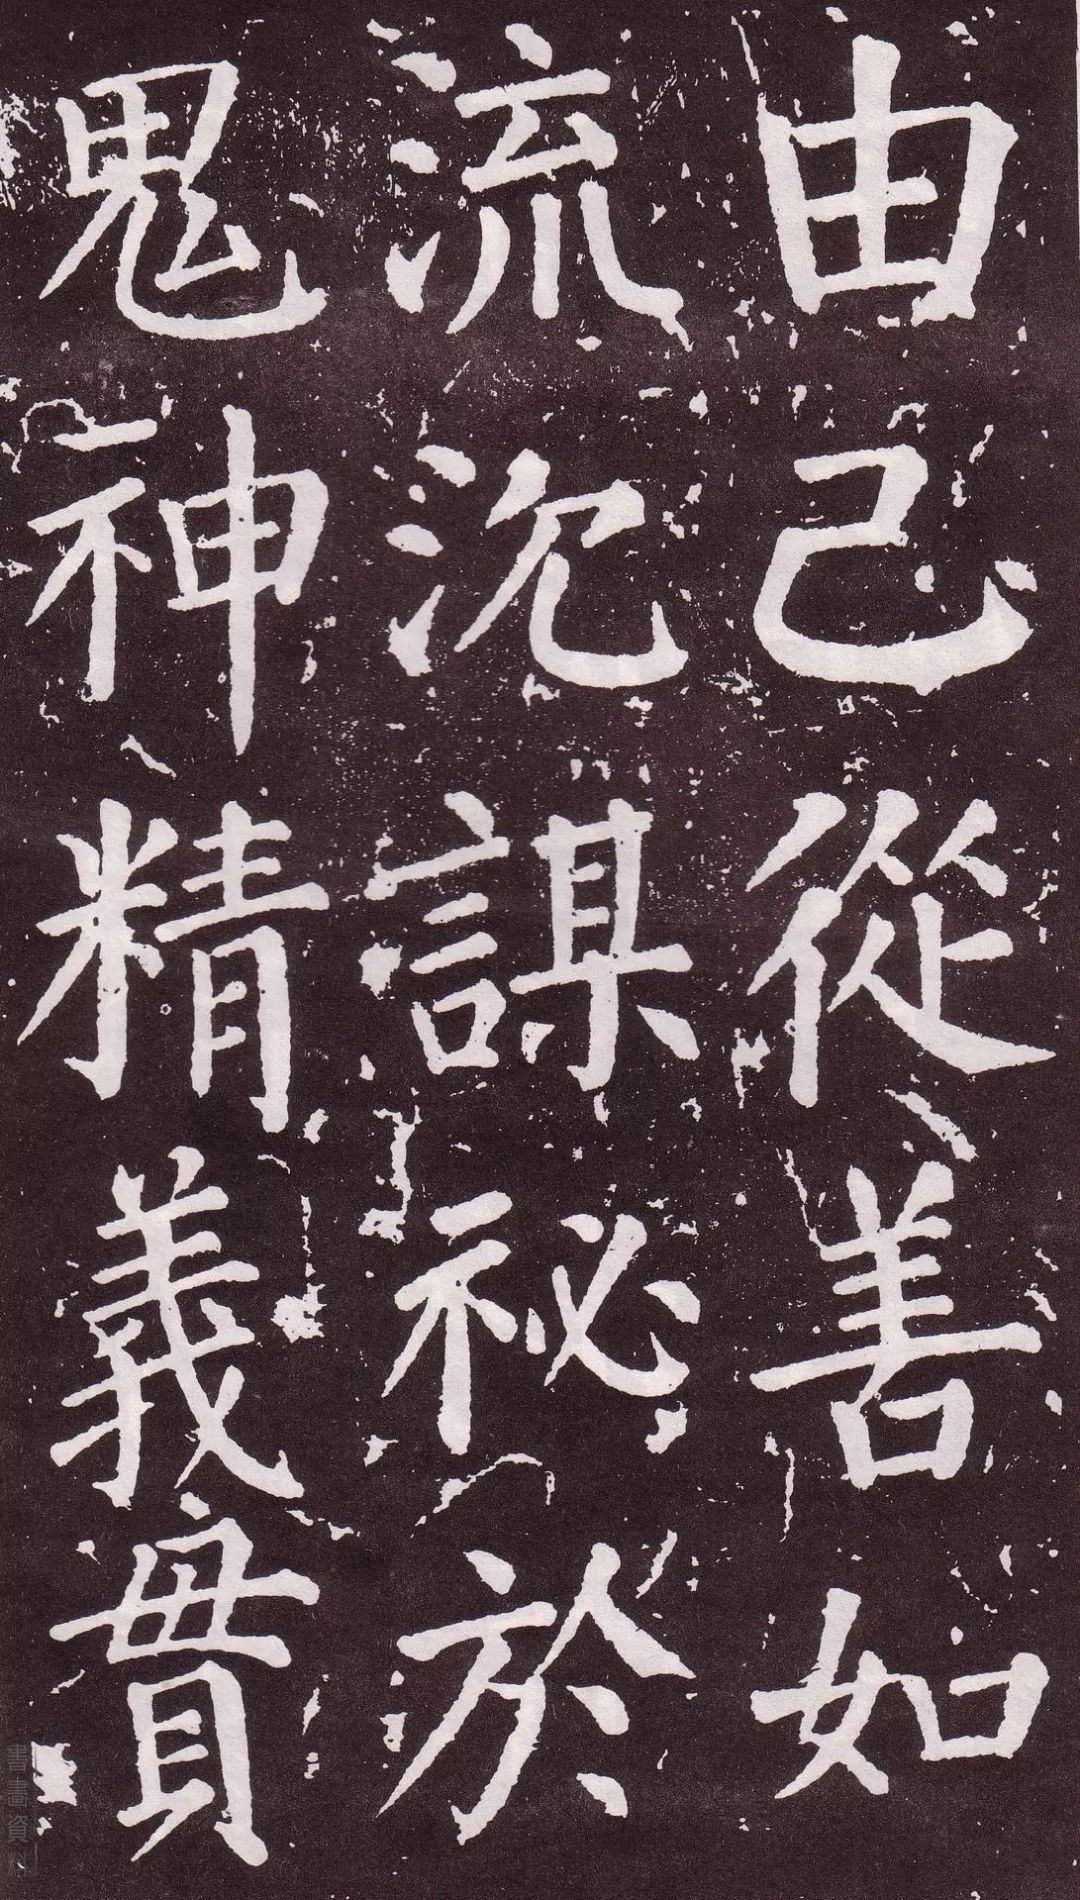 由己從善如
流沉謀祕於
鬼神精義貫
書畫資料